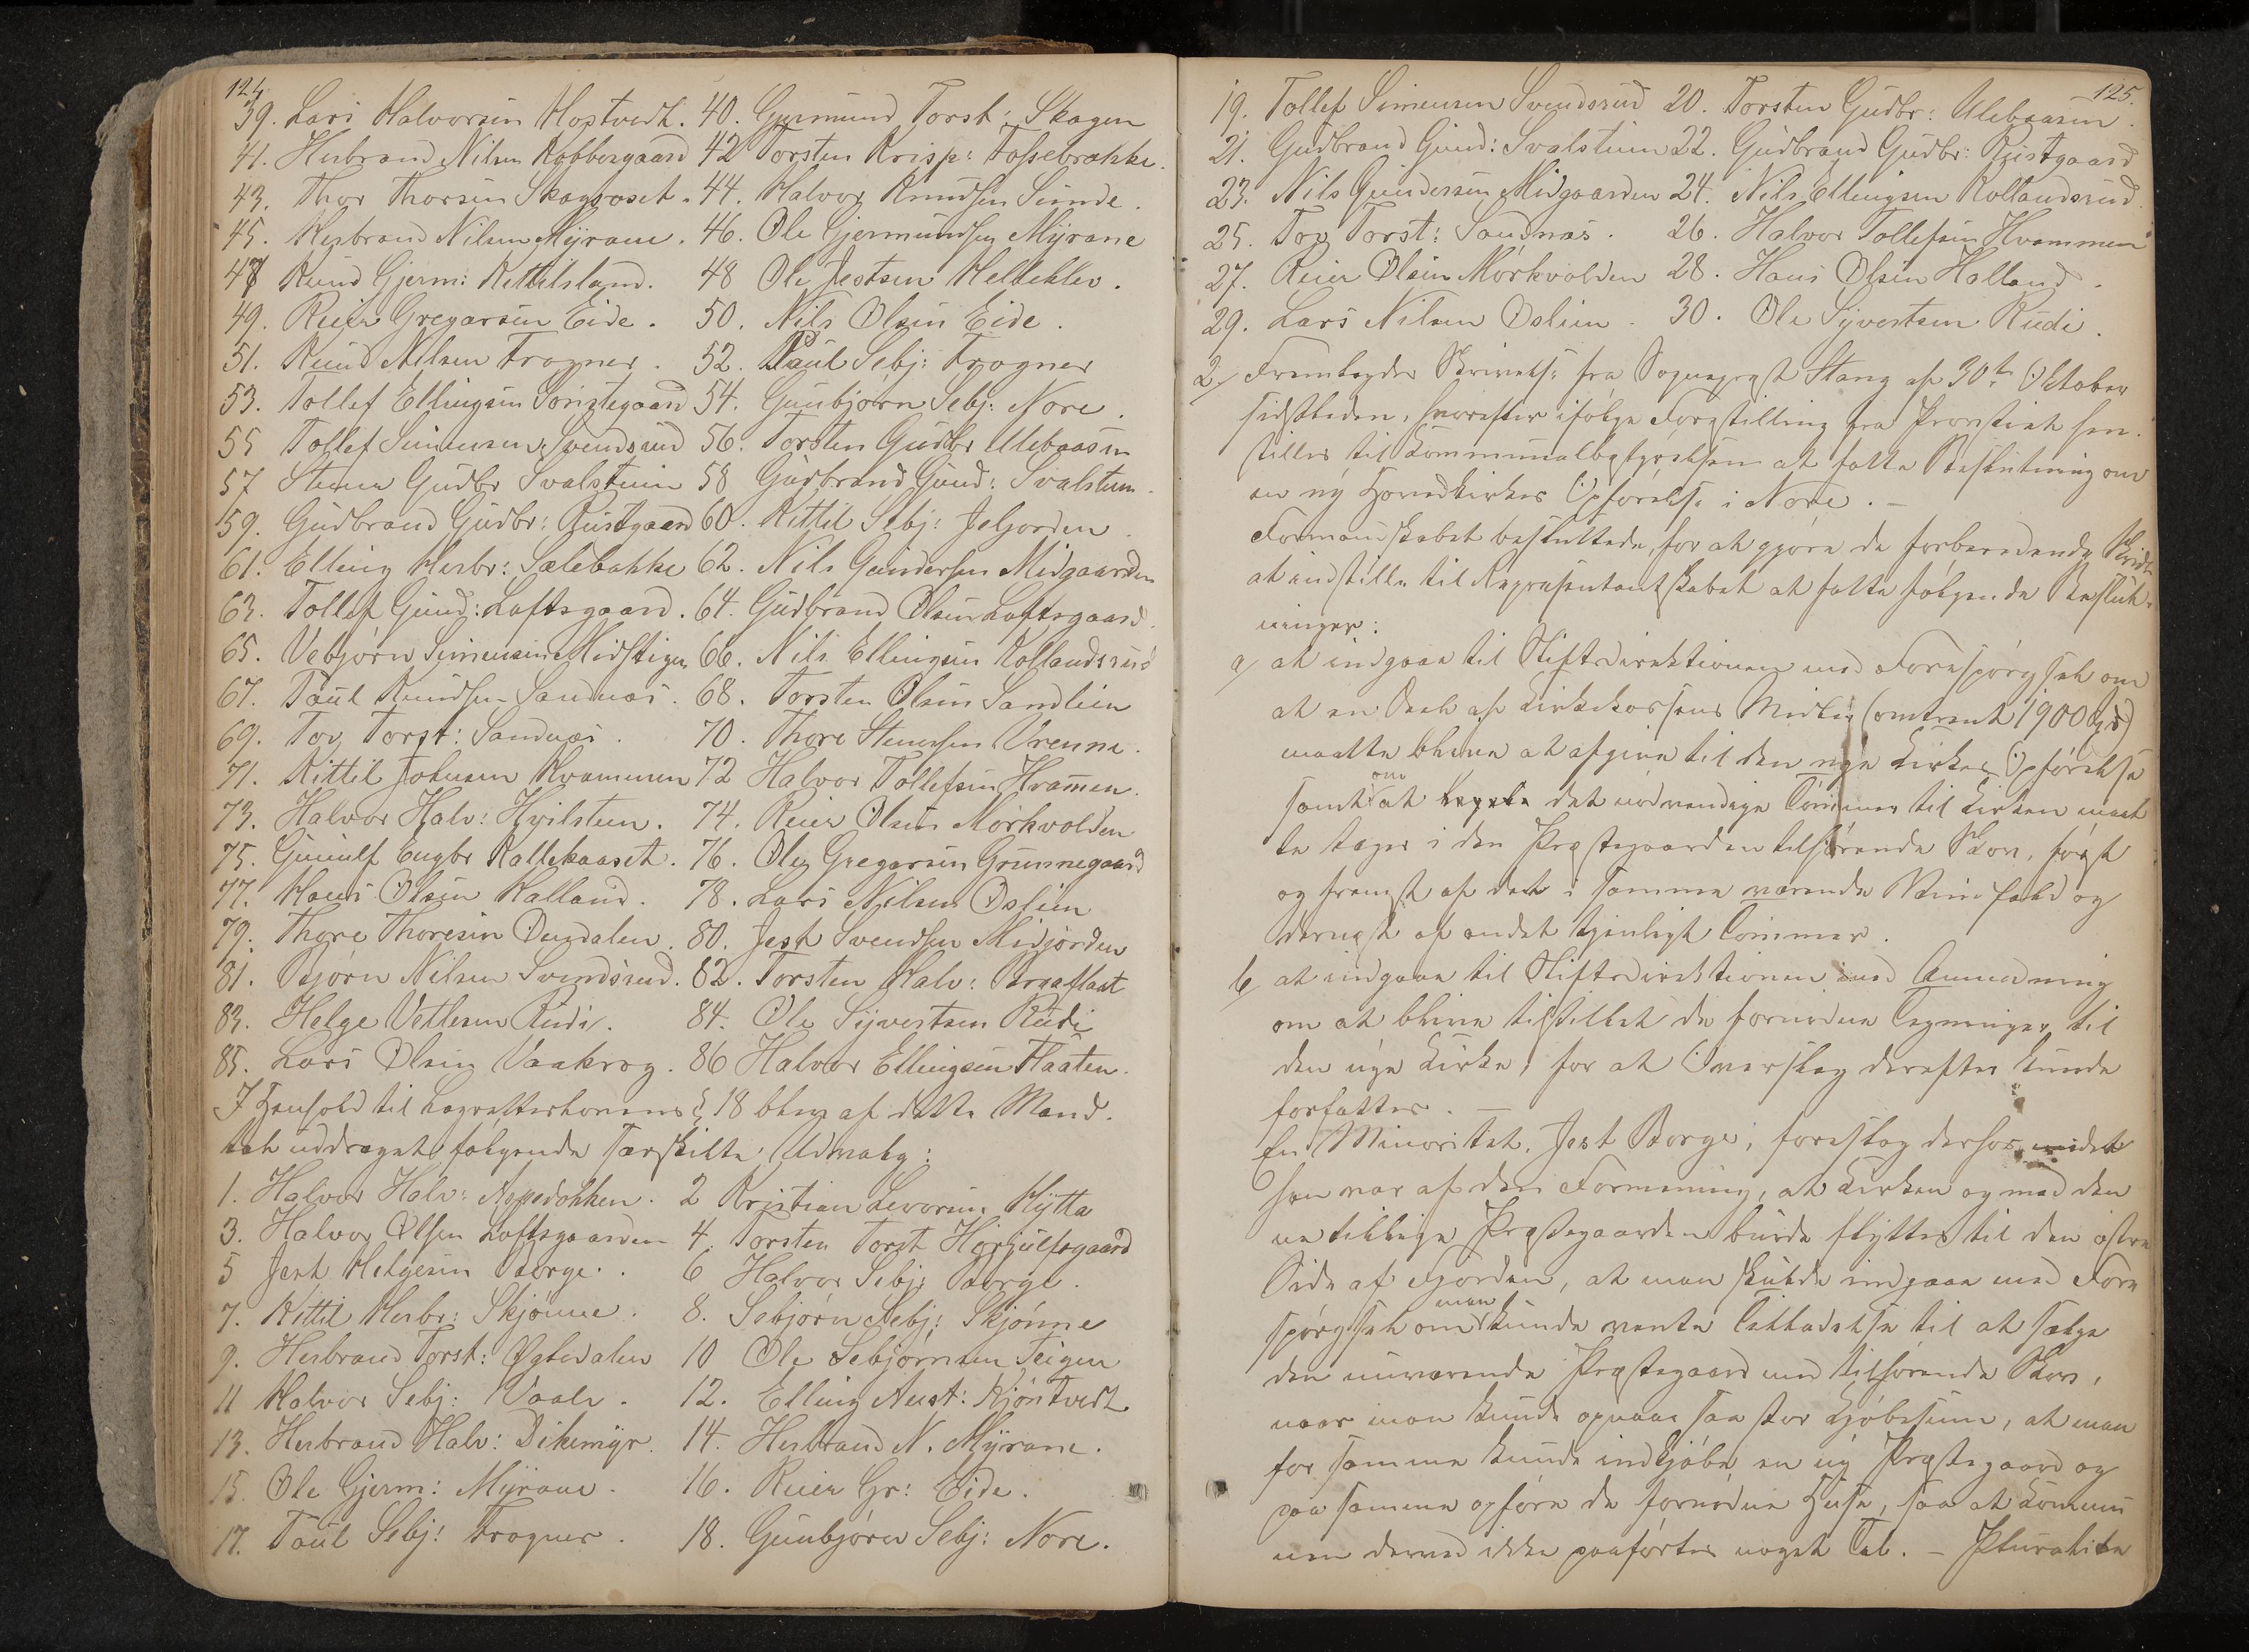 124.
39. Lars Halvorsen Hostvedt. 40. Gjermund Torst: Skagen
41. Herbrand Nilsen Kobbergaard 42 Torsten Krisp: Fossebrække.
43. Thor Thorsen Skagsoset. 44. Halvor Knudsen Sunde.
45. Herbrand Nilsen Myrane. 46. Ole Gjermundsen Myrane
47 Knud Gjerm: Kittilsland. 48 Ole Jestsen Helleklev.
49. Reier Gregarsen Eide. 50. Nils Olsen Eide.
51. Knud Nilsen Frogner. 52. Paul Sebj: Frogner
53. Tollef Ellingsen 54. Gunbjørn Sebj: Nore.
55 Tollef Simensen Svendsrud 56. Torsten Gudbr Ulebaasen
57 Stener Gudbr Svalstuen 58 Gudbrand Gund: Svalstuen.
59. Gudbrand Gudbr: Rustgaard 60. Kittil Sebj: Jeljorden.
61. Elling Herbr: Sælebakke 62. Nils Gundersen Midgaarden
63. Tollef Gund: Loftsgaard. 64. Gudbrand Olsen Loftsgaard.
65. Vebjørn Simensen Midstigen 66. Nils Ellingsen Rollandsrud
67. Paul Knudsen Sandnæs. 68. Torsten Olsen Sandlien
69. Tov Torst: Sandnæs. 70. Thore Stenersen Vrenne.
71. Kittil Johnsen Kvammen 72 Halvor Tollefsen Hvamen.
73. Halvor Halv: Hvilsteen. 74. Reier Olsen Mørkvolden
75. Gunulf Engbr Kallekaaset. 76. Ole Gregarsen Grønnegaard
77. Hans Olsen Halland. 78. Lars Nilsen Oslien
79. Thore Thoresen Dusdalen. 80. Jest Svendsen Midjorden
81. Bjørn Nilsen Svendsrud. 82. Torsten Halv: Borgaflaat
83. Helge Vetlesen Rudi. 84. Ole Syvertsen Rudi
85. Lars Olsen Vaakrog. 86 Halvor Ellingsen Flaaten.
I Henhold til Lagretteslovens § 18 blev af dette Mand-
tal uddraget følgende særskilte Udvalg:
1. Halvor Halv: Aspedokken. 2 Kristian Levorsen Hytta
3. Halvor Olsen Loftsgaarden 4. Torsten Torst Horjulfsgaard
5 Jest Helgesen Borge. 6 Halvor Sebj: Borge.
7. Kittil Herbr: Skjønne. 8. Sebjørn Sebj: Skjønne
9. Herbrand Torst: Øgtedalen 10 Ole Sebjørnsen Teigen
11 Halvor Sebj: Vaale. 12. Elling Aust: Kjøntvedt
13. Herbrand Halv: Dikemyr. 14. Herbrand N. Myrane.
15. Ole Gjerm: Myrane. 16. Reier Gr: Eide.
17. Paul Sebj: Frogner. 18. Gunbjørn Sebj: Nore.
125.
19. Tollef Simensen Svendsrud 20. Torsten Gudbr: Ulebaasen.
21. Gudbrand Gund: Svalstuen 22. Gudbrand Gudbr: Rustgaard
23. Nils Gundersen Midgaarden 24. Nils Ellingsen Rollandsrud
25. Tov Torst: Sandnæs. 26. Halvor Tollefsen Hvammen
27. Reier Olsen Mørkvolden 28. Hans Olsen Halland.
29. Lars Nilsen Oslien. 30. Ole Syvertsen Rudi.
2/ Fremlagdes Skrivelse fra Sognepræst Stang af 30te Oktober
sidstleden, hvorefter ifølge Forestilling fra Provstiet hen-
stilles til Kommunalbestyrelsen at fatte Beslutning om
en ny Hovedkirkes Opførelse i Nore. –
Formandskabet besluttede, for at gjøre de forberedende Skridt
at indstille til Repræsentantskabet at fatte følgende Beslut-
ninger:
a/ at indgaae til Stiftsdirektionen med Forespørgsel om
at en Deel af Kirkekassens Midler (omtrent 1900 )
maatte blive at afgive til den nye Kirkes Opførelse
samt om at det nødvendige Tømmer til Kirken maat-
te tages i den Præstegaarden tilhørende Skov, først
og fremst af det i samme værende Vindfald og
dernæst af andet tjenligt Tømmer.
b/ at indgaae til Stiftsdirektionen med Anmodning
om at blive tilstillet de fornødne Tegninger til
den nye Kirke, for at Overslag derefter kunde
forfattes. –
En Minoritet, Jest Borge, foreslog derhos,
han var af den Formening, at Kirken og med den
tillige Præstegaarden burde flyttes til den østre
Side af Fjorden, at man skulde indgaae med Fore-
spørgsel om man kunde vente Tilladelse til at sælge
den nuværende Præstegaard med tilhørende Skov,
naar man kunde opnaae saa stor Kjøbesum, at man
for samme kunde indkjøbe en ny Præstegaard og
paa samme opføre de fornødne Huse, saa at Kommu-
nen derved ikke paaførtes noget Tab. – Pluralite